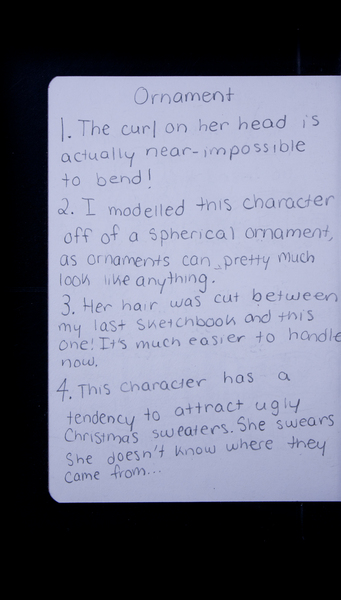 Ornament
1. The curl on her head is
actually near-impossible
to bend!
2. I modelled this character
off of a spherical ornament,
as ornaments can pretty much
look like anything.
3. Her hair was cut between
my last sketchbook and this
one! It's much easier to handle
now.
4. This character has a
tendency to attract ugly
Christmas sweaters. She swears
she doesn't know where they
came from...